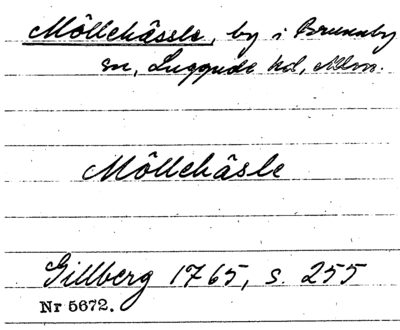 Möllehässle, by i Brunnby
sn, Luggude hd, Mlm.
Möllehäsle
Gillberg 1765, s. 255
Nr 5672.